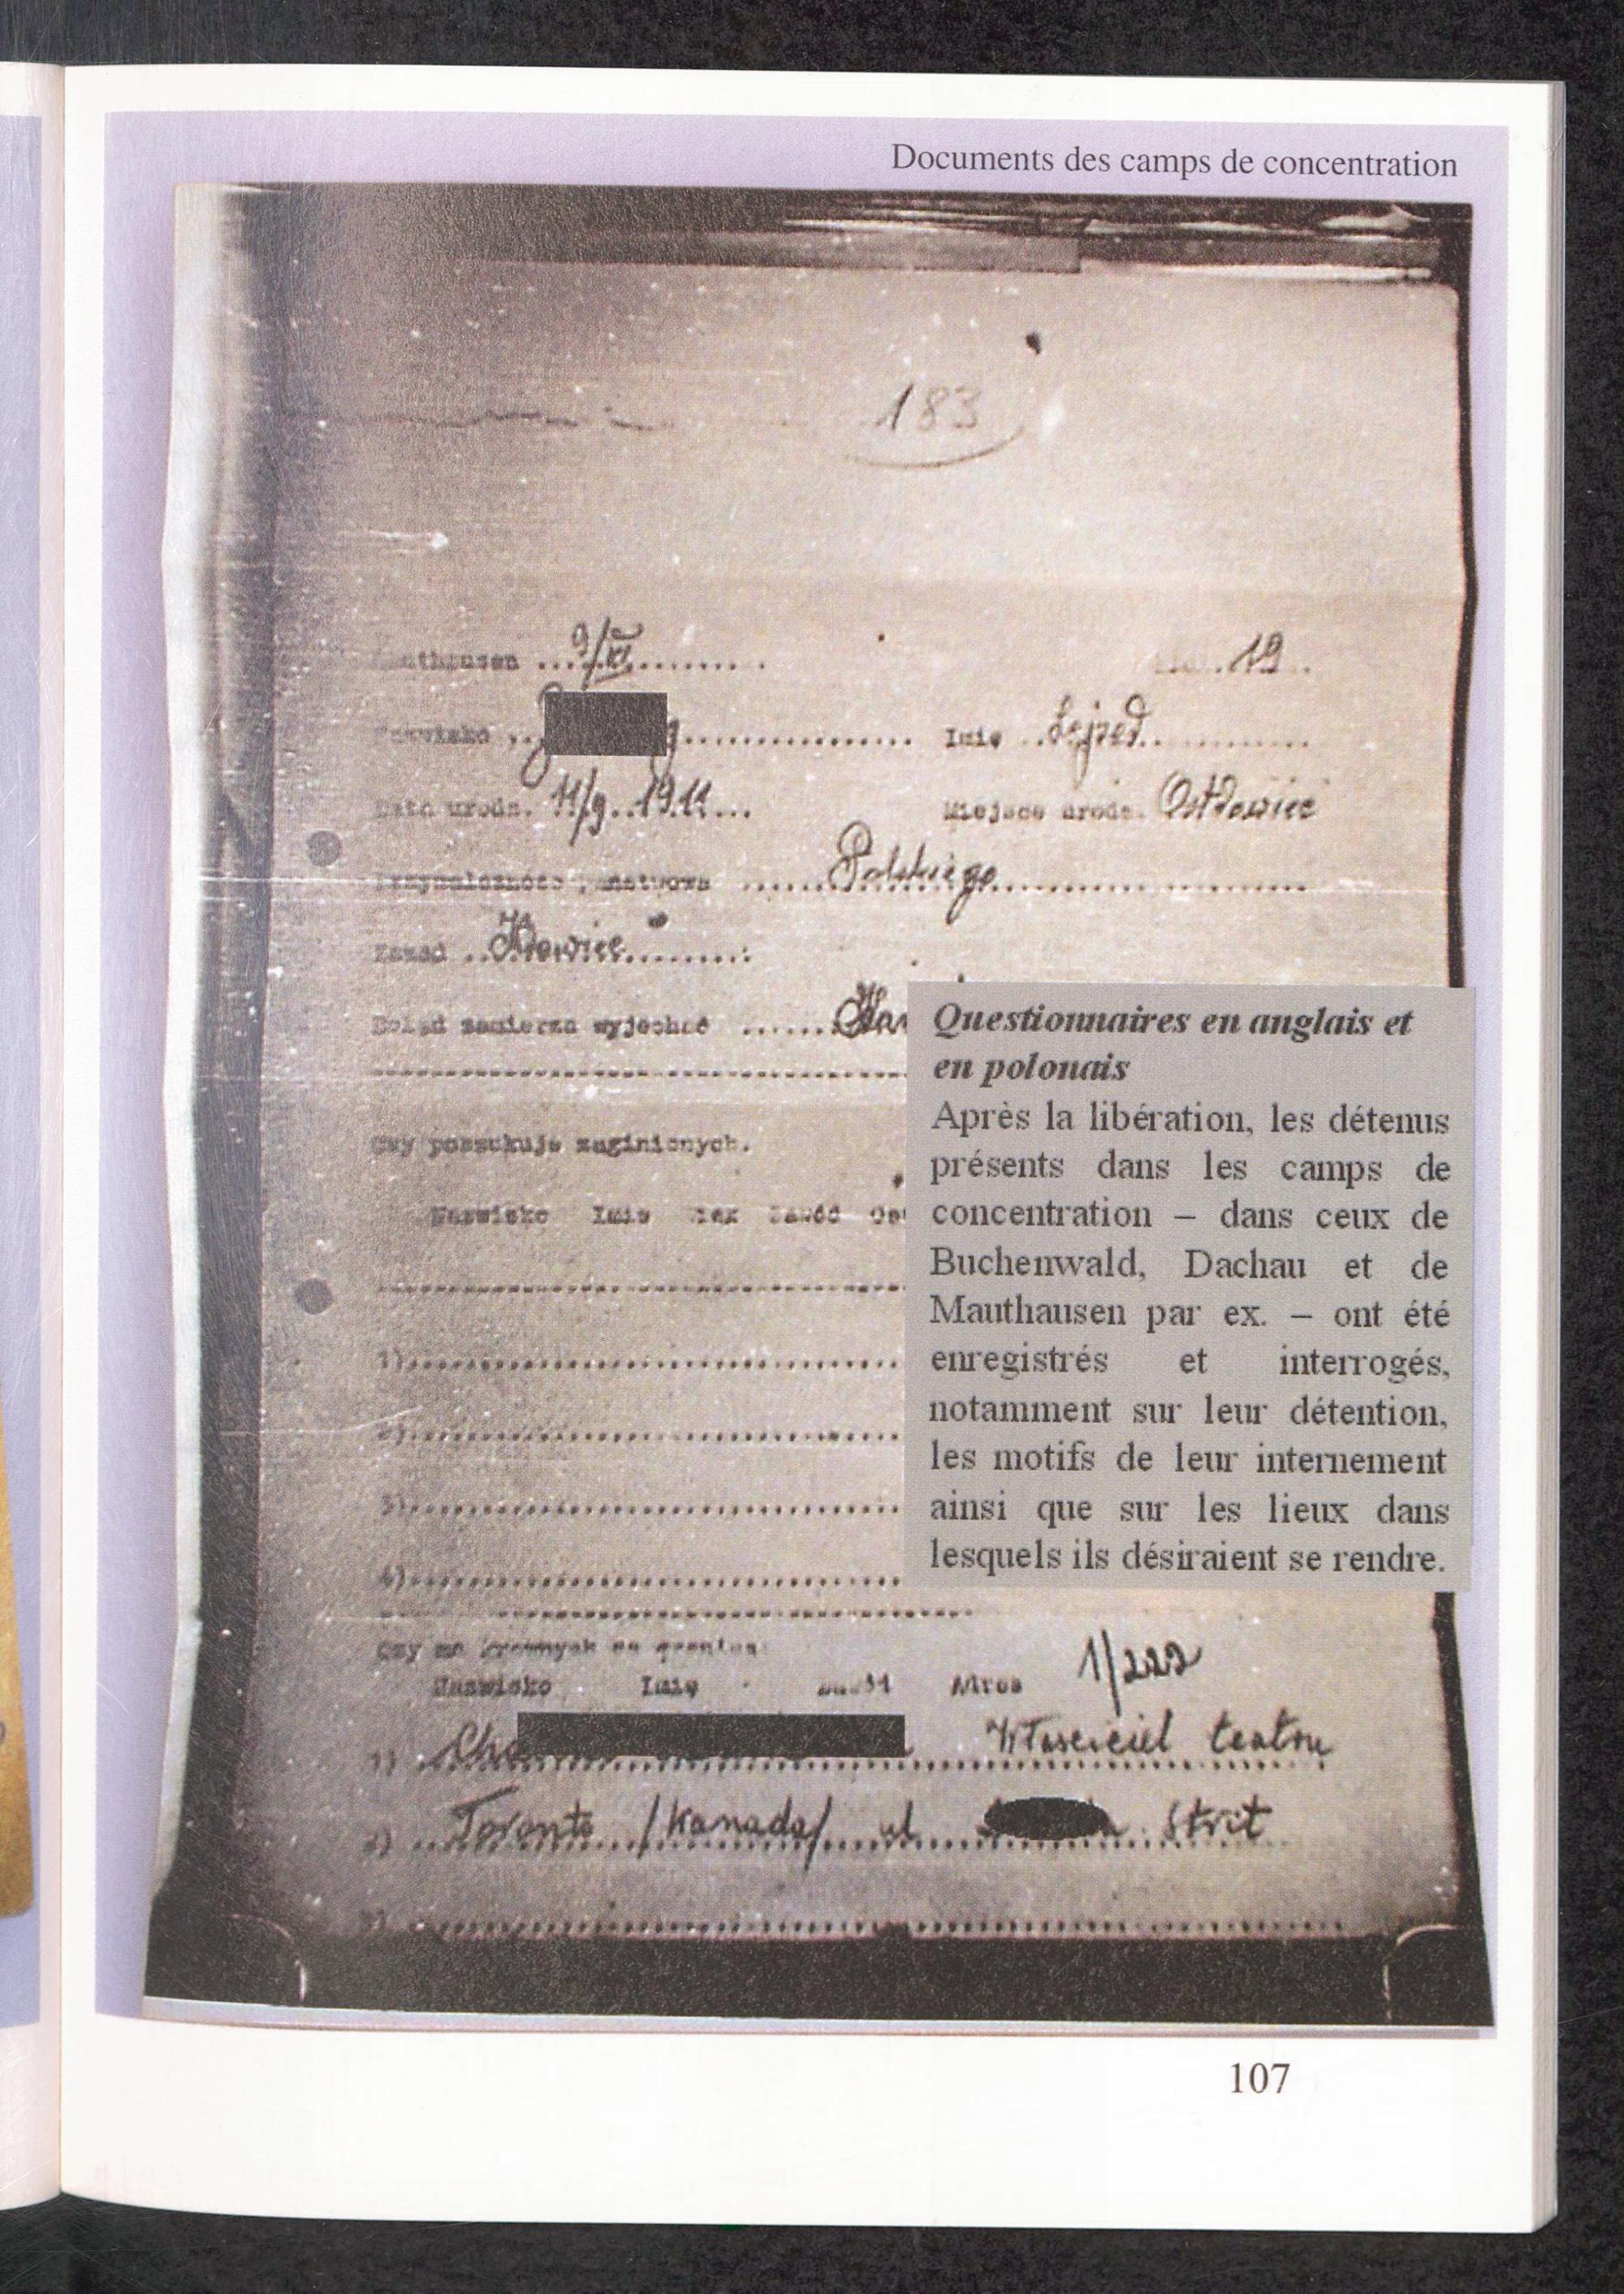 Documents des camps de concentration
183
Mauthausen ... 9/VI ......... . 19 ..
Nazwisko .. Imię .. Lejzed ..........
Data urodz. 11/9..1911... Miejsce urodz. Ostrowiec
Przynależność państwowa ...... Polskiego ..................
Zawód .. Krawiec .........
Dokąd zamierza wyjechać ......
Czy poszukuje zaginionych.
Nazwisko Imię Zawód
1)
2)
3)
4)
Czy ma krewnych za granicą
Nazwisko Imię Adres 1/222
1) Właściciel teatru
2) Toronto /Kanada/ ul Strit
3)
Questionnaires en anglais et
en polonais
Après la libération, les détenus
présents dans les camps de
concentration – dans ceux de
Buchenwald, Dachau et de
Mauthausen par ex. – ont été
enregistrés et interrogés,
notamment sur leur détention,
les motifs de leur internement
ainsi que sur les lieux dans
lesquels ils désiraient se rendre.
107